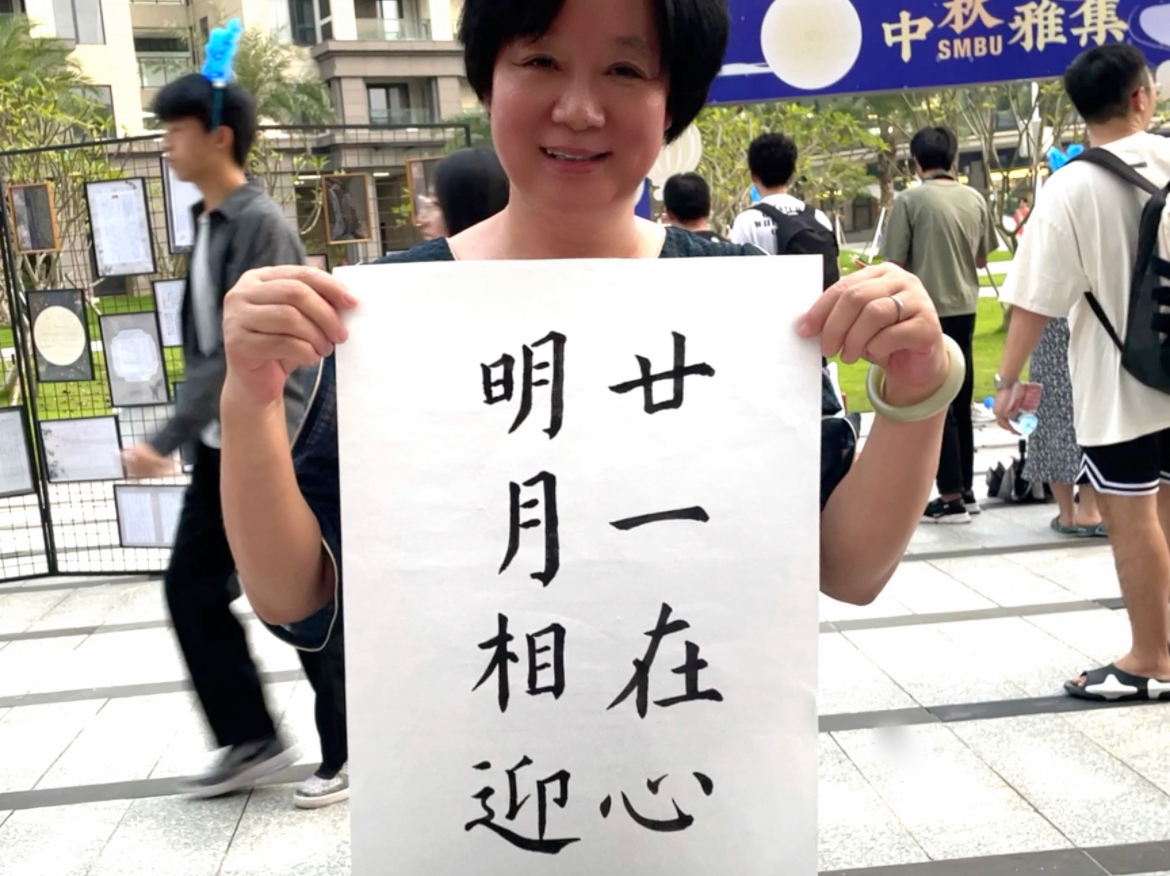 中秋雅集
SMBU
廿一在心
明月相迎